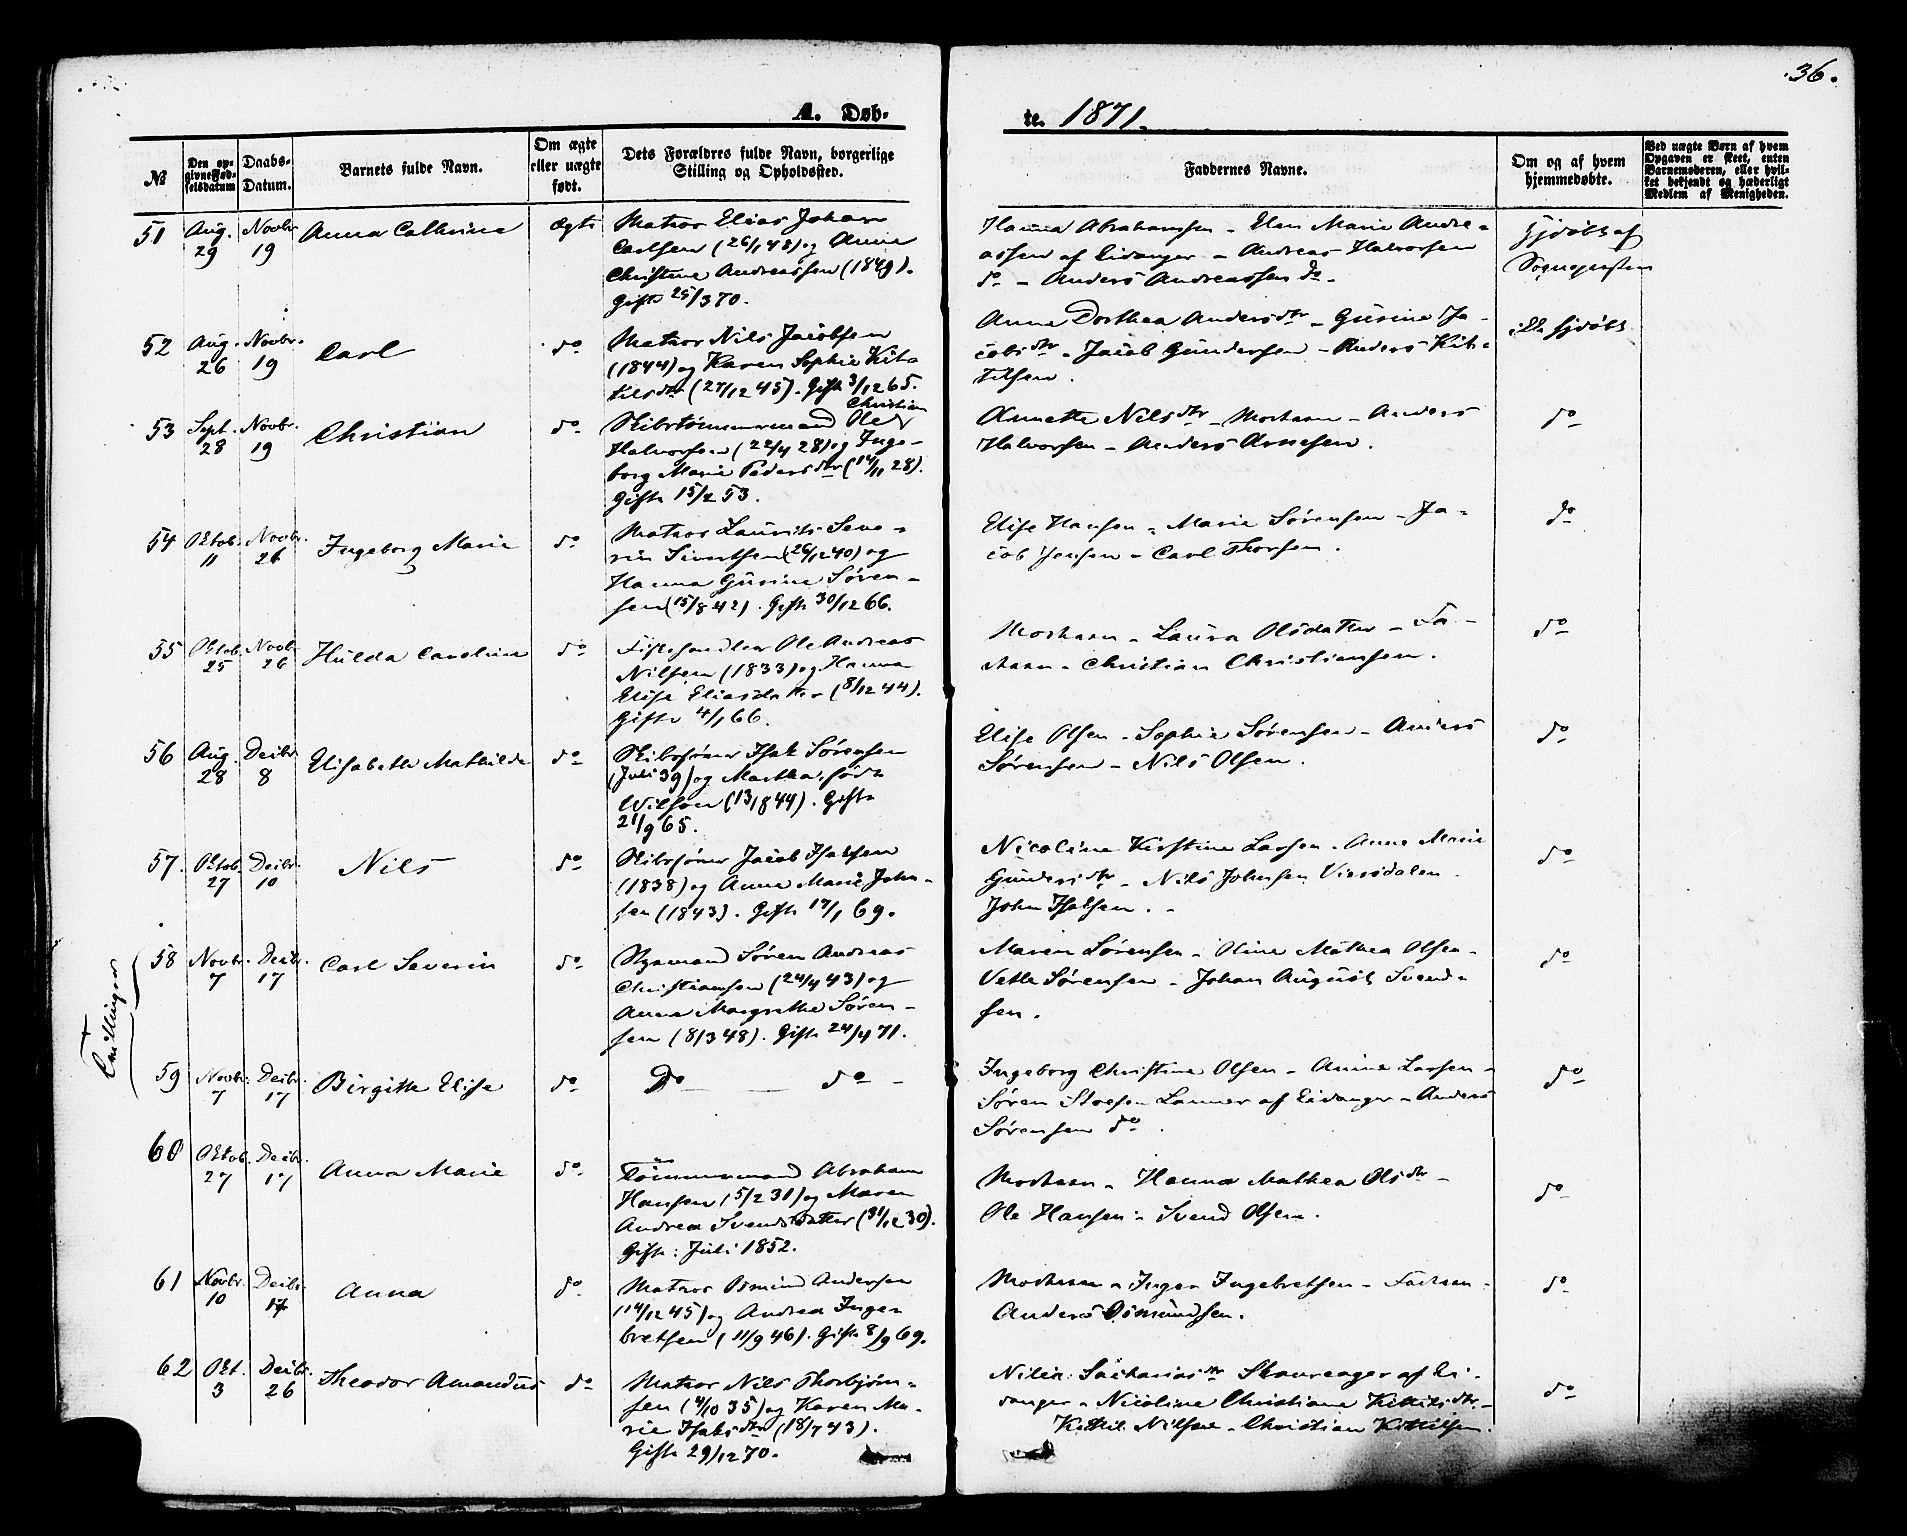 36.
A. Døb-
te. 1871.
№
Den opgivne Fødselsdatum
Daabs-Datum.
Barnets fulde Navn.
Om ægte eller uægte født.
Dets Forældres fulde Navn, borgerlige Stilling og Opholdssted.
Faddernes Navne.
Om og af hvem hjemmedøbte.
Ved uægte Børn af hvem Opgaven er skeet, enten Barnemoderen, eller hvilket bekjendt og hæderligt Medlem af Menigheden.
51 Aug. 29 Novbr. 19 Anna Cathrine Ægte
Matros Elias Johan
Carlsen (26/1 48) og Anne
Christine Andreassen (1849).
Gifte 25/3 70.
Hanna Abrahamsen - Elen Marie Andre-
assen af Eidanger - Andreas Halvorsen
do - Anders Andreassen do -
Hjdøbt af
Sognepresten
52 Aug. 26 Novbr. 19 Carl do
Matros Nils Jacobsen
(1844) og Karen Sophie Kit-
tilsdtr (27/12 45). Gift 3/12 65.
Anne Dorthea Andersdtr - Gurine Ja-
cobsdtr - Jacob Gundersen - Anders Kit-
tilsen.
ikke hjdøbt
53 Sept. 28 Novbr. 19 Christian do
Christian
Skibstømmermand Ole
Halvorsen (22/4 28) og Inge-
borg Marie Pedersdtr (14/11 28).
Gifte 15/2 53.
Annette Nilsdtr - Moderen - Anders
Halvorsen - Anders Arnesen.
do
54 Oktob. 11 Novbr. 26 Ingeborg Marie do
Matros Laurits Seve-
rin Sivertsen (26/12 40) og
Hanna Gurine Søren-
sen (15/8 42). Gifte 30/12 66.
Elise Hansen - Marie Sørensen - Ja-
cob Jensen - Carl Thorsen.
do
55 Oktob. 25 Novbr. 26 Hulda Caroline do
Fiskehandler Ole Andreas
Nilsen (1833) og Hanna
Elise Eliasdatter (8/12 44).
Gifte 4/1 66.
Moderen - Laura Olsdatter - Fa-
deren - Christian Christiansen.
do
56 Aug. 28 Decbr. 8 Elisabeth Mathilde do
Skibsfører Isak Sørensen
(Juli 39) og Martha, født
Wilson (13/8 44). Gifte
21/9 65.
Elise Olsen - Sophie Sørensen - Anders
Sørensen - Nils Olsen.
do
57. Oktob. 27 Decbr. 10 Nils do
Skibsfører Jacob Isaksen
(1838) og Anne Marie John-
sen (1843). Gifte 17/1 69.
Nicoline Kirstine Larsen - Anne Marie
Gundersdtr - Nils Johnsen Versdalen
John Isaksen. -
do
Tvillinger
58 Novbr. 7 Decbr. 17 Carl Severin do
Styrmand Søren Andreas
Christiansen (24/4 43) og
Anne Margrethe Søren-
sen (8/3 48). Gifte 24/4 71.
Maren Sørensen - Oline Mathea Olsen -
Vetle Sørensen - Johan August Svend-
sen.
do
59 Novbr. 7 Decbr. 17 Birgitte Elise do
Do - do -
Ingeborg Christine Olsen - Anne Larsen -
Søren Lanner af Eidanger - Anders
Sørensen do.
do
60 Oktob. 27 Decbr. 17 Anna Marie do
Tømmermand Abraham
Hansen (5/2 31) og Maren
Andrea Svendsdatter (31/12 30).
Gifte: Juli 1852.
Moderen - Hanna Mathea Olsdtr -
Ole Hansen - Svend Olsen.
do
61 Novbr. 10 Decbr. 17 Anna do
Matros Osmund Andersen
(14/12 45) og Andrea Inge-
bretsen (11/9 46). Gifte 8/9 69.
Moderen - Inger Ingebretsen - Faderen -
Anders Osmundsen.
do
62 Okt. 3 Decbr. 26 Theodor Amandus do
Matros Nils Thorbjørn-
sen (4/10 35) og Karen Ma-
rie Isaksdtr (18/7 43).
Gifte 29/12 70.
Sachariasdtr Skavraager af Ei-
danger - Nicoline Christiane Kittilsdtr. -
Kittil Nilsen - Christian Kittilsen.
do